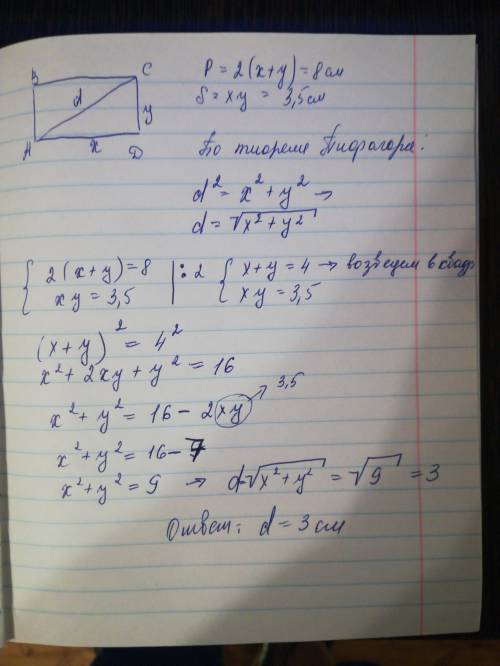 B C
d y
A x D
P = 2(x+y) = 8 см
S = xy = 3,5 см
По теореме Пифагора:
d² = x² + y² →
d = √x² + y²
{ 2(x+y)=8 | : 2 { x+y = 4 → возведем в квадр
xy = 3,5 xy = 3,5
(x+y)² = 4²
x² + 2xy + y² = 16
x² + y² = 16 - 2xy → 3,5
x² + y² = 16 - 7
x² + y² = 9 → d=√x² + y² = √9 = 3
Ответ: d = 3 см